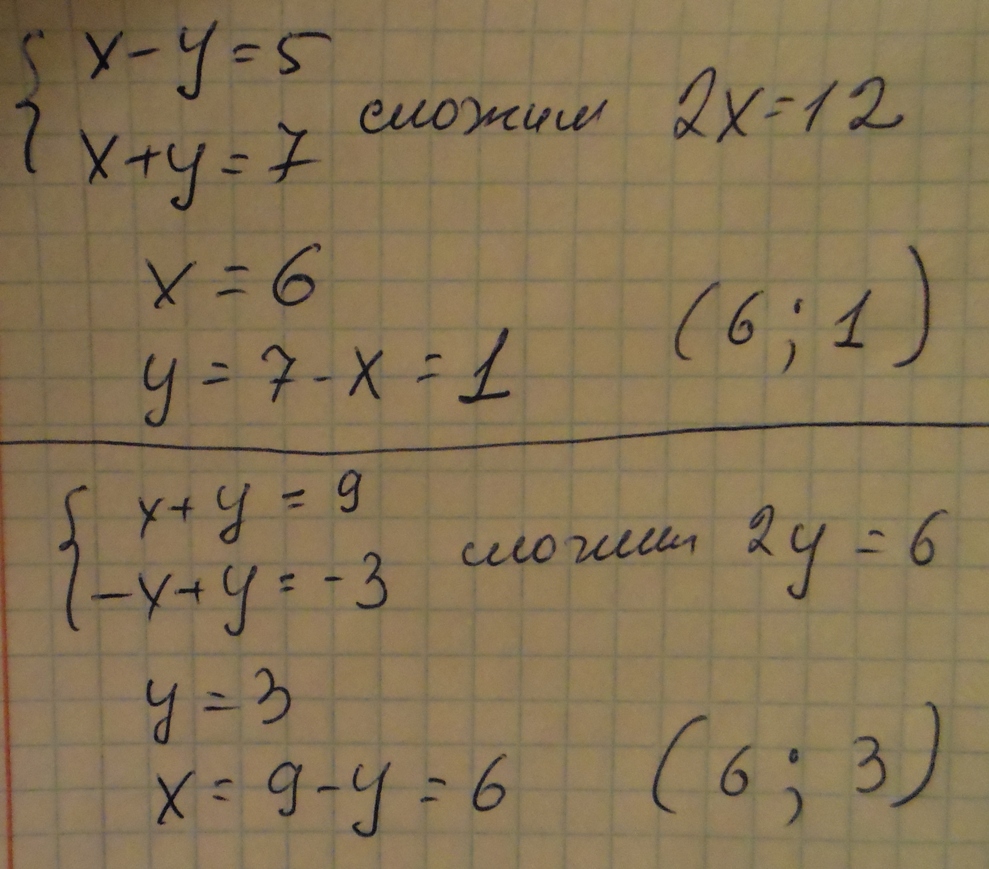 x-y=5
x+y=7 сложим 2x=12
x=6
y=7-x=1 (6;1)
x+y=9
-x+y=-3 сложим 2y=6
y=3
x=9-y=6 (6;3)